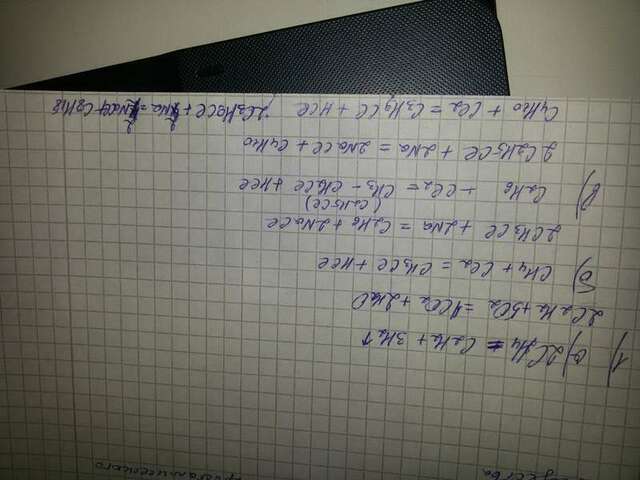 1) а) 2CH4 = C2H2 + 3H2↑
2C2H2 + 5O2 = 4CO2 + 2H2O
б) CH4 + Cl2 = CH3Cl + HCl
2CH3Cl + 2Na = C2H6 + 2NaCl
(C2H5Cl)
в) C2H6 + Cl2 = CH3 - CH2Cl + HCl
2C2H5Cl + 2Na = 2NaCl + C4H10
C4H10 + Cl2 = C3H9Cl + HCl; 2C3H9Cl + 2Na = 2NaCl + C8H18